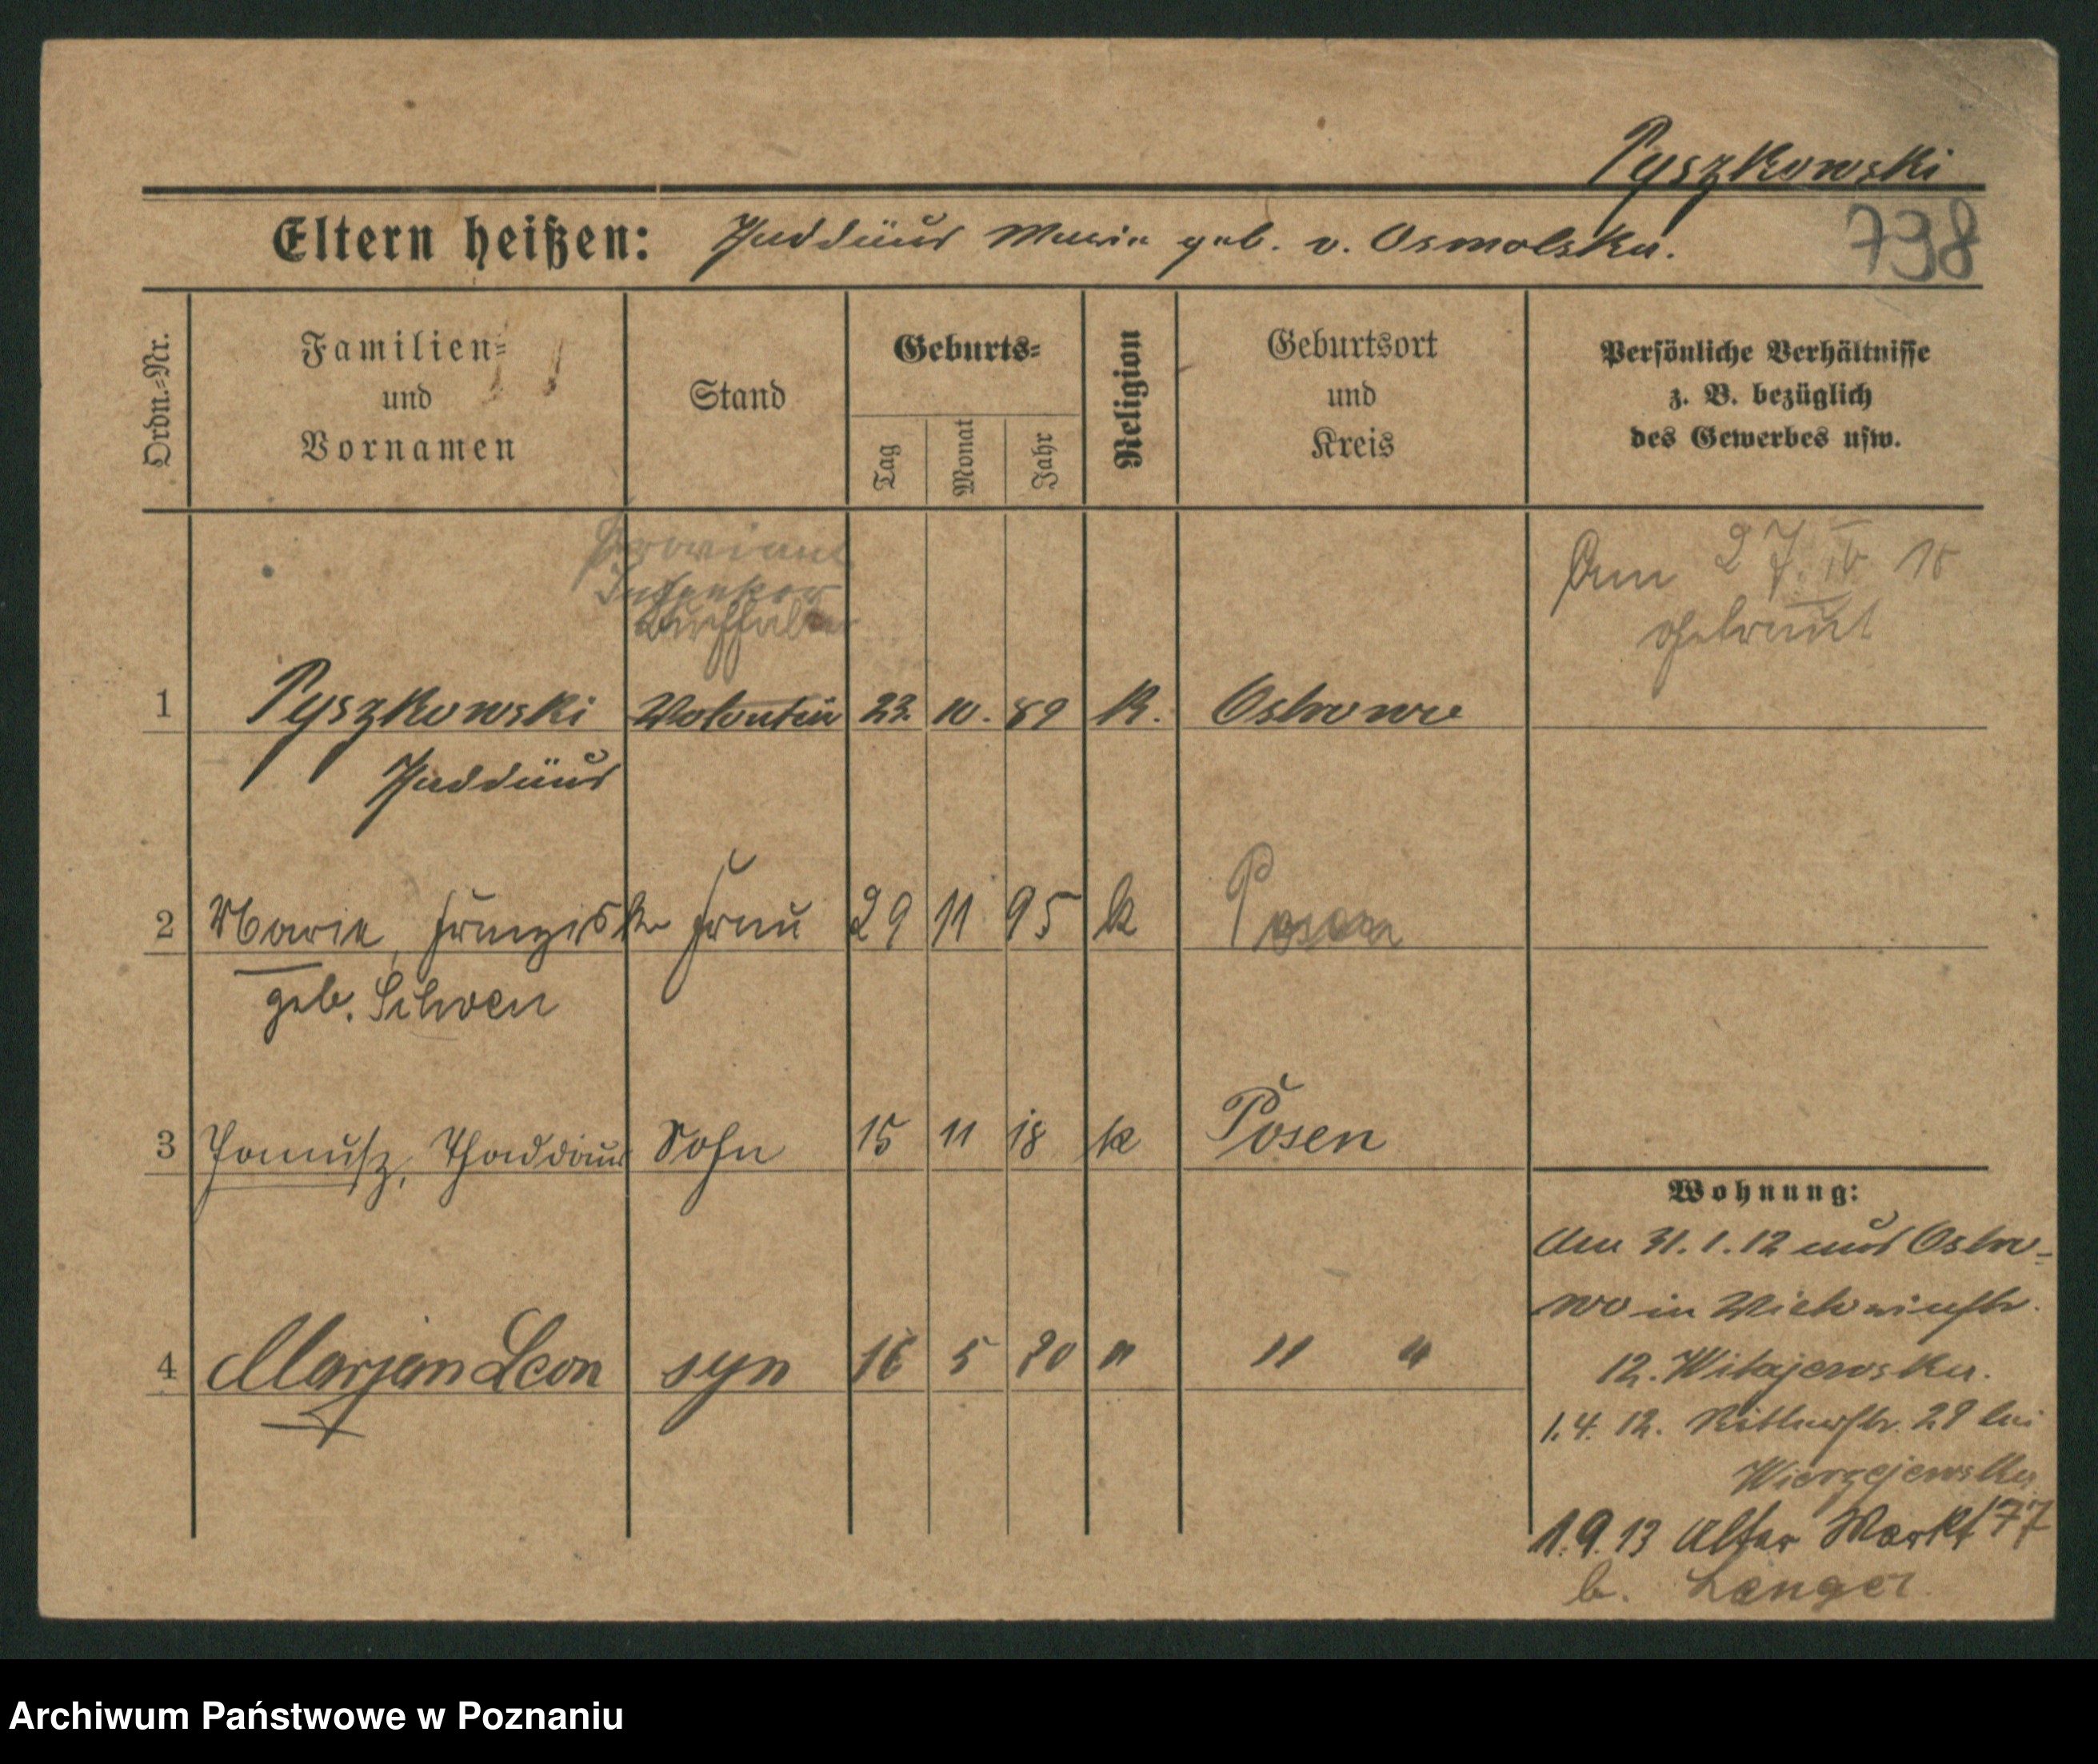 Pyszkowski
Eltern heißen: Thaddäus Maria geb. v. Osmolska.
798
Ordn.-Nr.
Familien-
und
Vornamen
Stand
Geburts-
Tag
Monat
Jahr
Religion
Geburtsort
und
Kreis
Persönliche Verhältnisse
z. B. bezüglich
des Gewerbes usw.
Proviant
Am 27. IV 18
getraut
1 Pyszkowski Volontär 23. 10. 89 K. Ostrowo
Thaddäus
2 Marie, Franziska Frau 29 11 95 k Posen
geb. Schoen
3 Janusz, Thaddäus Sohn 15 11 18 k Posen
Wohnung:
Am 31.1.12 aus Ostro-
wo in Victoriastr.
4 Marjan Leon syn 16 5 20 " " "
12. Witajewska.
1.4.12. Ritterstr. 29 bei
Wierzejewska
1.9.13 Alter Markt 77
b. Langer
Archiwum Państwowe w Poznaniu